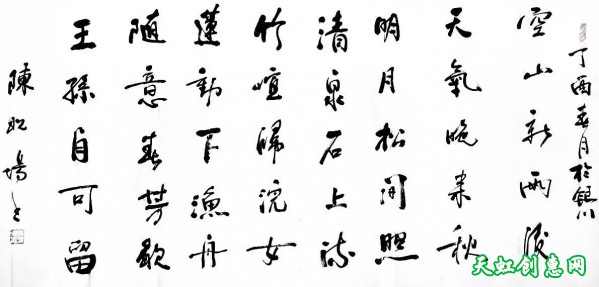 丁酉春月於銀川
空山新雨後
天氣晚来秋
明月松間照
清泉石上流
竹喧歸浣女
蓮動下漁舟
随意春芳歇
王孫自可留
陳
天虹创惠网